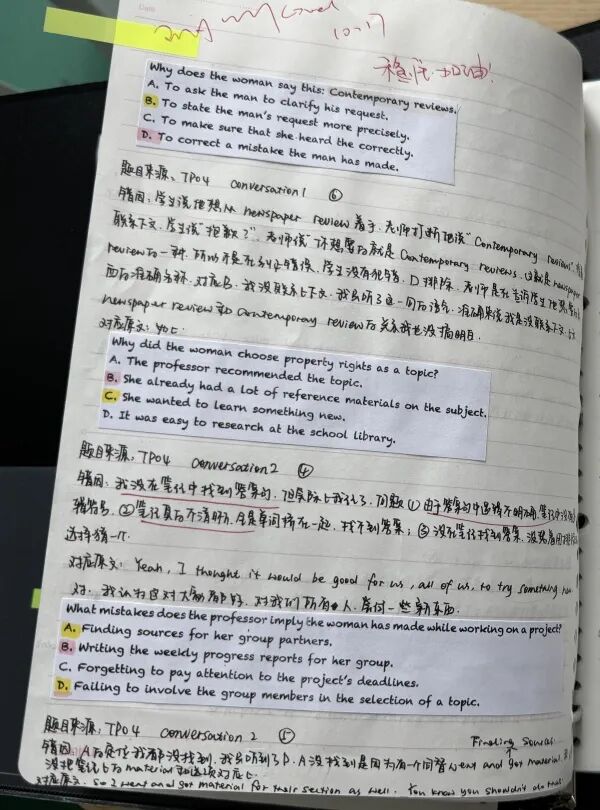 Date
Good
10-17
稳住 加油!
Why does the woman say this: Contemporary reviews.
A. To ask the man to clarify his request.
B. To state the man's request more precisely.
C. To make sure that she heard the correctly.
D. To correct a mistake the man has made.
题目来源: TPO4 conversation1 ⑥
错因: 学生说他想从 newspaper review 着手, 老师打断他说"Contemporary reviews",
联系下文, 学生说"抱歉?", 老师说"你想要的就是 Contemporary reviews, 这就是 newspaper
review的一种, 所以不是在纠正错误, 学生没有犯错, D排除, 老师是在告诉学生他想要
的准确名称, 对应B, 我没联系上下文, 我只听了这一句的语气, 准确来说我是没联系下文,
newspaper review 和 Contemporary review的关系我也没搞明白.
对应原文:
Why did the woman choose property rights as a topic?
A. The professor recommended the topic.
B. She already had a lot of reference materials on the subject.
C. She wanted to learn something new.
D. It was easy to research at the school library.
题目来源: TPO4 conversation2 ④
错因: 我没在笔记中找到答案句, 但实际上我记了, 问题①由于答案句中逻辑不明确, 笔记中没有逻
辑符号, ②笔记复的不清晰, 全是单词挤在一起, 找不到答案; ③没在笔记找到答案, 没想着用排除
选择猜一个.
对应原文: Yeah, I thought it would be good for us, all of us, to try something new.
对, 我认为这对大家都好, 对我们所有人, 尝试一些新东西.
What mistakes does the professor imply the woman has made while working on a project?
A. Finding sources for her group partners.
B. Writing the weekly progress reports for her group.
C. Forgetting to pay attention to the project's deadlines.
D. Failing to involve the group members in the selection of a topic.
题目来源: TPO4 conversation 2 ⑤
Finding Sources
错因: A的定位我都没找到, 我只听到了D. A没找到是因为有一个同替 went and got material
没把笔记上的material和选项对应上
对应原文: So I went and got material for their section as well. You know you shouldn't do that.